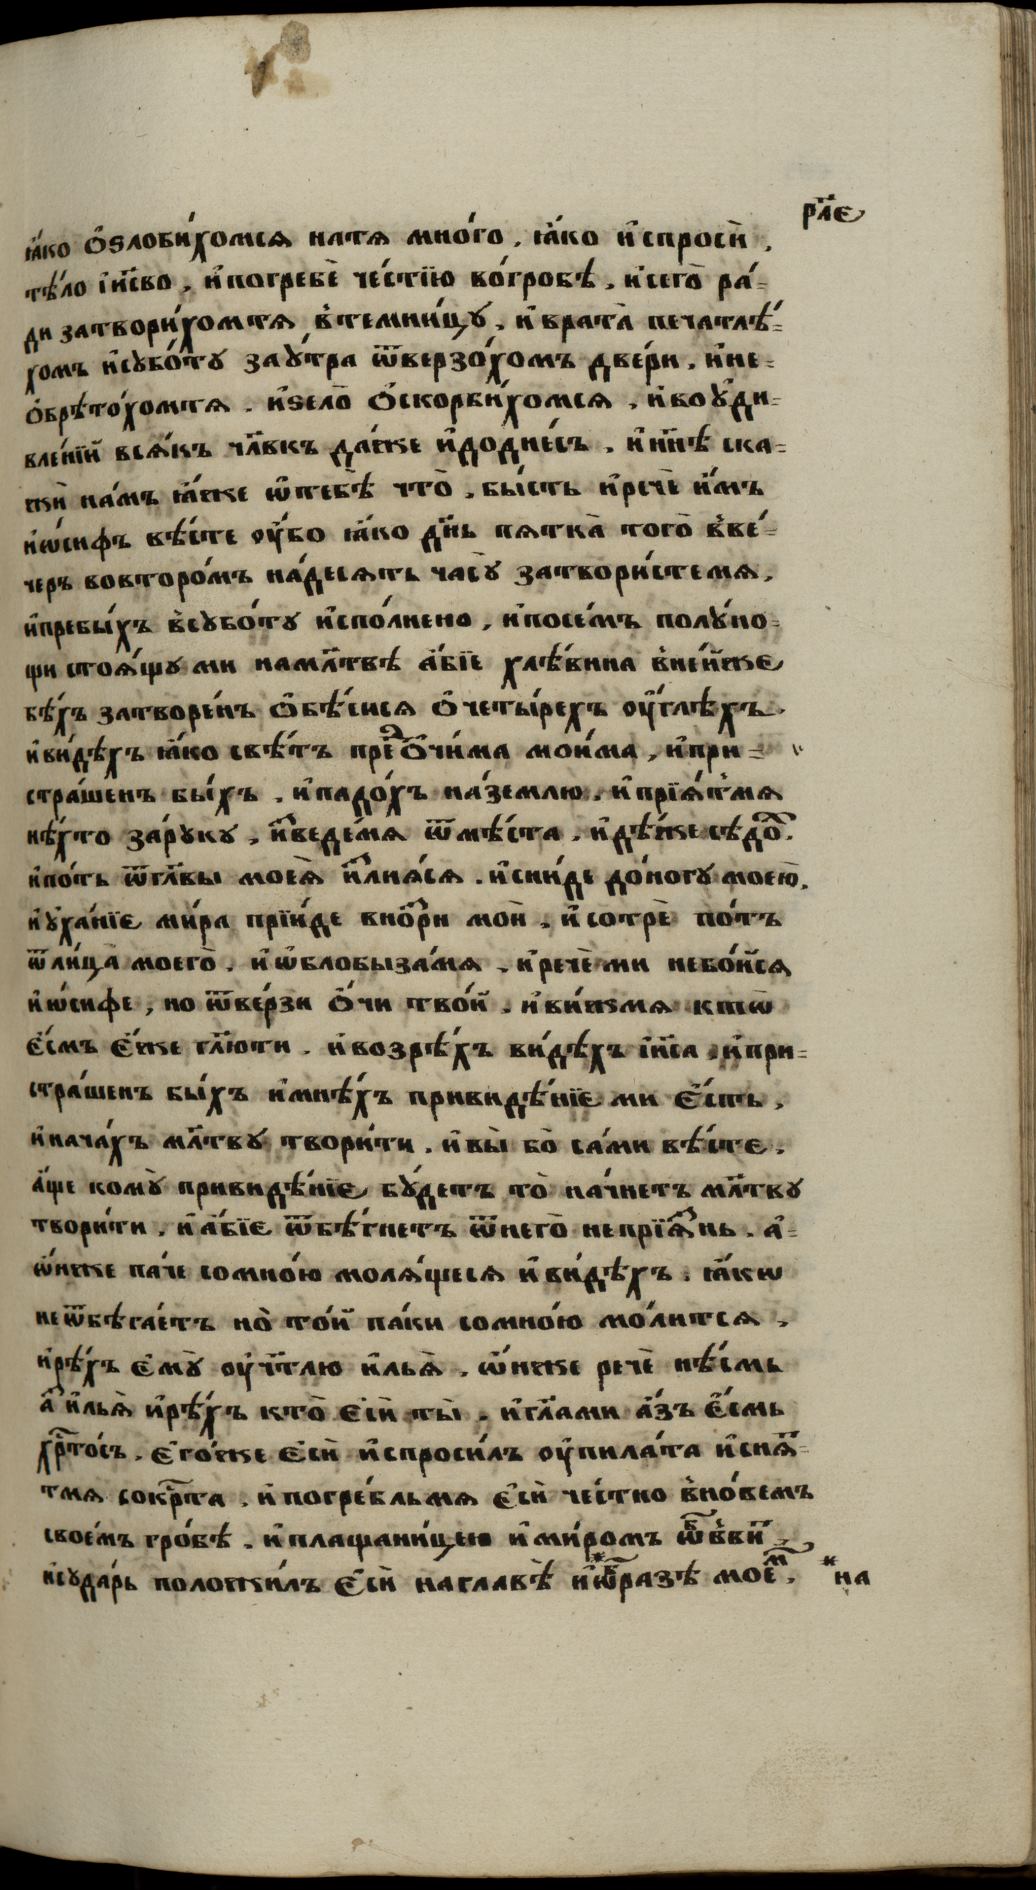 рл҃е
ꙗ҆́ко ѻ҆ѕлоби́хомсѧ натѧ мно́го . ꙗ҆́ко и҆спроси̑ .
тѣ́ло і҆и҃сво , и҆погребѐ че́стїю во́гробѣ . и҆сего̀ ра́=
ди затвори́хомтѧ в̾темни́цꙋ . и҆ врата̀ печатлѣ́=
хомъ и҆сꙋбо́тꙋ заꙋ́тра ѿверзо́хомъ две́ри . и҆не=
ѻ҆брѣто́хомтѧ . и҆ѕело̀ ѻ҆скорби́хомсѧ , и҆воꙋ҆ди=
вле́нїй всѧ́къ чл҃вкъ да́же и҆додне́сь . и҆ нн҃ѣ ска=
жѝ на́мъ ꙗ҆́же ѡ҆тебѣ̀ что̀ . бы́сть и҆ речѐ и҆́мъ
и҆ѡ́сифъ вѣ́сте ᲂу҆́бо ꙗ҆́ко дн҃ь пѧтка̀ того̀ в̾ве́=
черъ вовторо́мъ на́десѧть часꙋ̀ затвори́стемѧ .
и҆пребы́хъ в̾сꙋбо́тꙋ и҆спо́лнено , и҆посе́мъ полꙋ́но=
щи стоѧ́щꙋ ми намл҃твѣ а҆́бїе хлѣ́вина в̾не́йже
бѣ́хъ затворе́нъ ѻ҆бѣ́сисѧ ѻ҆ четы́рехъ ᲂу҆́глѣхъ .
и҆ви́дѣхъ ꙗ҆́ко свѣ́тъ преⷣѻ҆чи́ма мои́ма , и҆при=
стра́шенъ бы́хъ . и҆падо́хъ на́землю . и҆ прїѧ́т̾мѧ
нѣ́хто за́рꙋкꙋ , и҆веде́мѧ ѿмѣ́ста . и҆дѣ́же сѣдоⷯ .
и҆по́тъ ѿгл҃вы моеѧ̀ и҆злїѧ́сѧ . и҆сни́де до́ногꙋ моею̀ .
и҆ꙋ҆ха́нїе ми́ра прїи́де вно́зⷣри моѝ . и҆ сотрѐ по́тъ
ѿлица̀ моегѡ̀ . и҆ ѡ҆блобыза́мѧ . и҆ речѐ ми небо́йсѧ
и҆ѡ́сифе , но ѿве́рзи ѻ҆́чи твои̑ . и҆ ви́жмѧ кто̀
е҆́смъ е҆́же гл҃юти . и҆ возрѣ́хъ ви́дѣхъ і҆и҃са , и҆при=
стра́шенъ бы́хъ и҆мнѣ́хъ привидѣ́нїе ми є҆́сть .
и҆нача́хъ мл҃твꙋ твори́ти . и҆ вы̀ бо са́ми вѣ́сте .
а҆́ще комꙋ̀ привидѣ́нїе бꙋ́детъ то̀ на́чнетъ мл҃твꙋ
твори́ти . и҆ а҆́бїе ѿбѣ́гнетъ ѿнего̀ непрїѧ́знь . а҆=
ѡ҆́нже па́че сомно́ю молѧ́щесѧ и҆ ви́дѣхъ . ꙗ҆́кѡ
неѿбѣга́етъ но̀ то́й па́ки сомно́ю мо́литсѧ .
и҆рѣ́хъ є҆мꙋ̀ ᲂу҆чт҃лю и҆льѧ̀ . ѡ҆́нже речѐ нѣ́смь
а҆́зъ и҆льѧ̀ и҆рѣ́хъ кто̀ є҆сѝ ты̀ . и҆гл҃ами а҆́зъ є҆́смь
хрⷭ҇то́съ . є҆го́же є҆сѝ и҆спроси́лъ ᲂу҆пила́та и҆снѧⷧ҇=
тмѧ сокрⷭ҇та . и҆ погре́бльмѧ є҆сѝ че́стно в̾но́вемъ
свое́мъ гро́бѣ . и҆ плащани́цею и҆ ми́ромъ ѡ҆бви́лъ .
и҆сꙋда́рь положи́лъ є҆сѝ наглавѣ̀ и҆* ѡ҆́бразѣ мое́мⷨ . *на